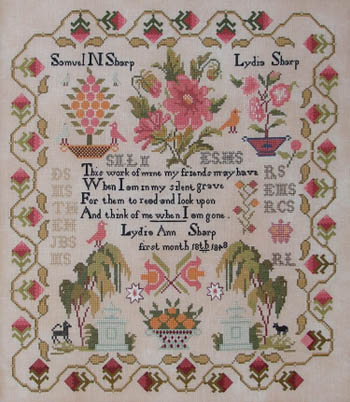 Samuel N Sharp Lydia Sharp
SH LI ES HS
This work of mine my friends may have
When I am in my silent grave
For them to read and look upon
And think of me when I am gone.
Lydia Ann Sharp
first month 18th 1848
DS
MS
TH
EH
JBS
MS
RS
EMS
RCS
RL